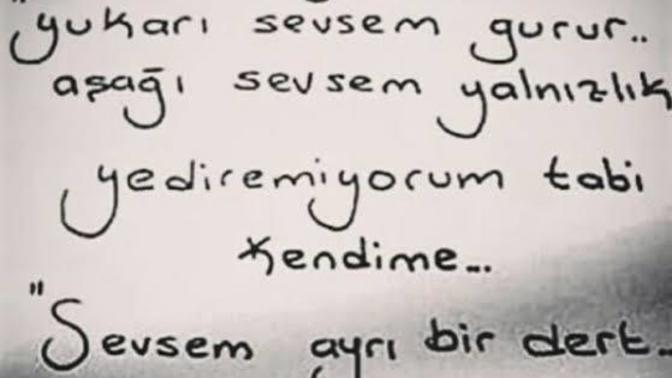 "yukarı sevsem gurur..
aşağı sevsem yalnızlık
yediremiyorum tabi
kendime...
"Sevsem ayrı bir dert..